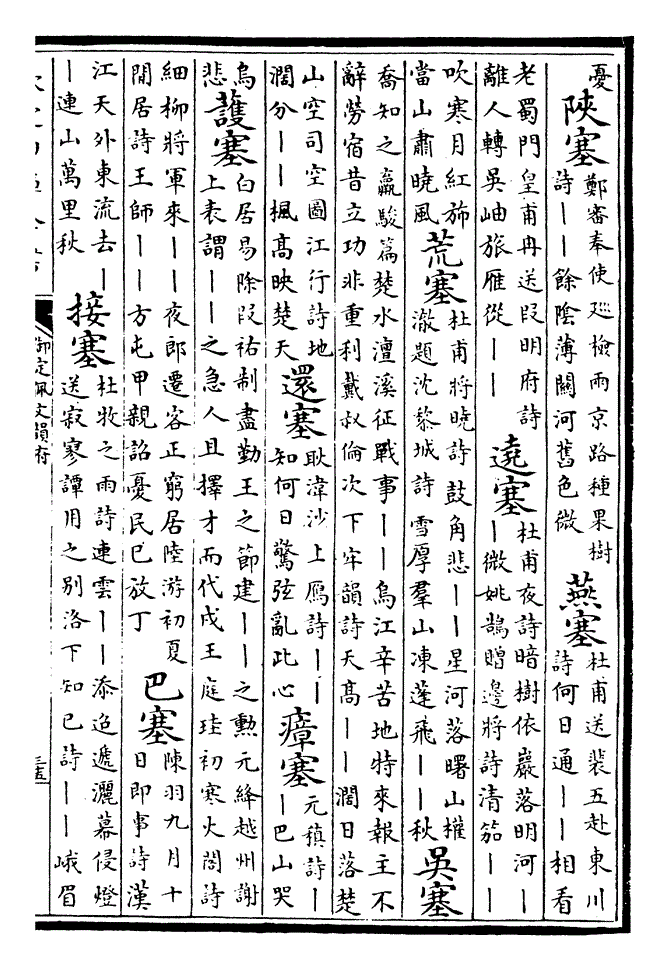 憂陝塞鄭審奉使廵檢兩京路種果樹詩——餘陰薄關河舊色微燕塞杜甫送裴五赴東川詩何日通——相看
老蜀門皇甫冉送段明府詩離人轉吳岫旅雁從——遶塞杜甫夜詩暗樹依巖落明河——微姚鵠贈邊將詩清笳——
吹寒月紅斾當山肅曉風荒塞杜甫將曉詩鼓角悲——星河落曙山權澈題沈黎城詩雪厚羣山凍蓬飛——秋吳塞
喬知之羸駿篇楚水澶溪征戰事——烏江辛苦地特來報主不辭勞宿昔立功非重利戴叔倫次下牢韻詩天高——濶日落楚
山空司空圖江行詩地濶分——楓高映楚天還塞耿湋沙上鴈詩——知何日驚弦亂此心瘴塞元稹詩——巴山哭
烏悲護塞白居易除段祐制盡勤王之節建——之勲元絳越州謝上表謂——之急人且擇才而代戍王庭珪初寒火閤詩
細柳將軍來——夜郎遷客正窮居陸游初夏閒居詩王師——方屯甲親詔憂民已放丁巴塞陳羽九月十日即事詩漢
江天外東流去——連山萬里秋接塞杜牧之雨詩連雲——添迢遞灑幕侵燈送寂寥譚用之別洛下知已詩——峨眉
御定佩文韻府